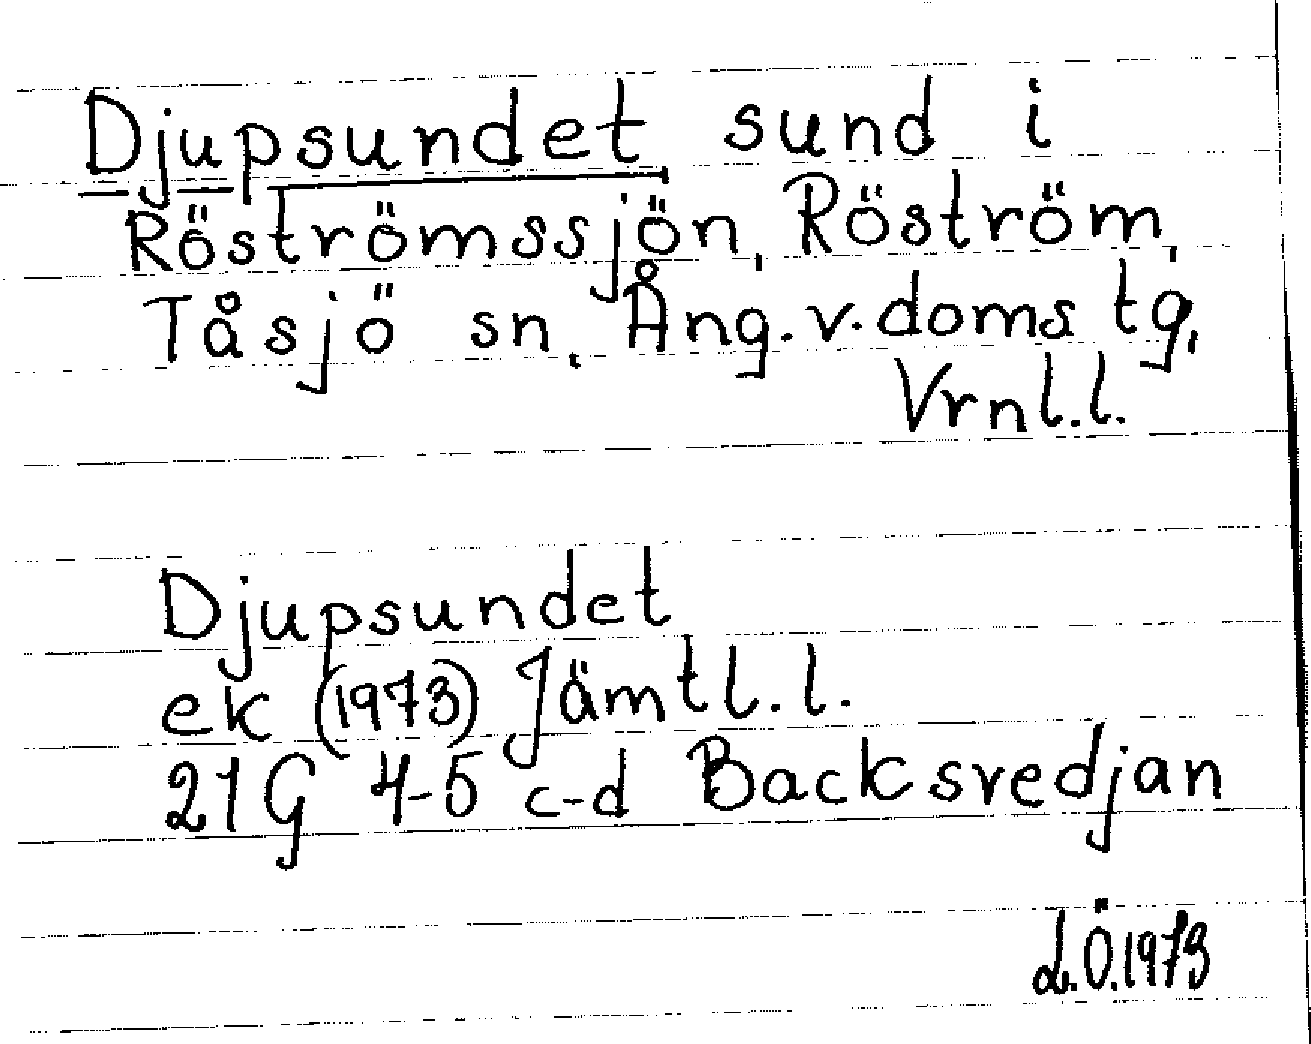 Djupsundet, sund i
Röströmssjön, Röström,
Tåsjö sn, Ång. v. doms tg,
Vrnl.l.
Djupsundet
ek (1973) Jämtl.l.
21G 4-5 c-d Backsvedjan
L.Ö.1973